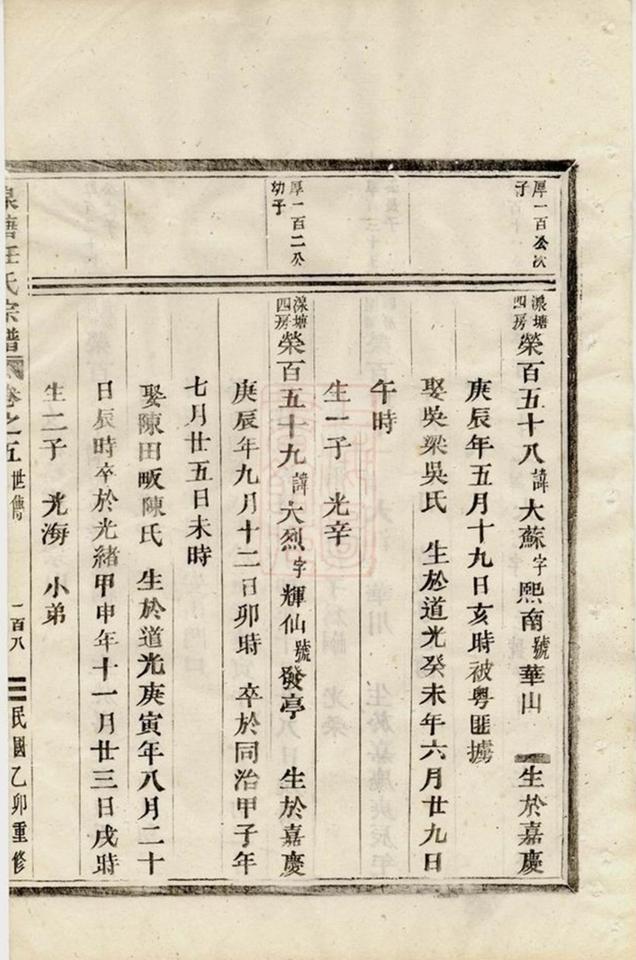 厚一百公次
子
濠塘
四房
榮百五十八諱大蘇字熙南號華山 生於嘉慶
庚辰年五月十九日亥時被粵匪擄
娶吳梁吳氏 生於道光癸未年六月廿九日
午時
生一子 光辛
厚一百二公
幼子
濠塘
四房
榮百五十九諱大烈字輝仙號發亭 生於嘉慶
庚辰年九月十二日卯時 卒於同治甲子年
七月廿五日未時
娶陳田畈陳氏 生於道光庚寅年八月二十
日辰時卒於光緒甲申年十一月廿三日戌時
生二子 光海 小弟
塘汪氏宗譜 卷之五 世傳 一百八 民國乙卯重修